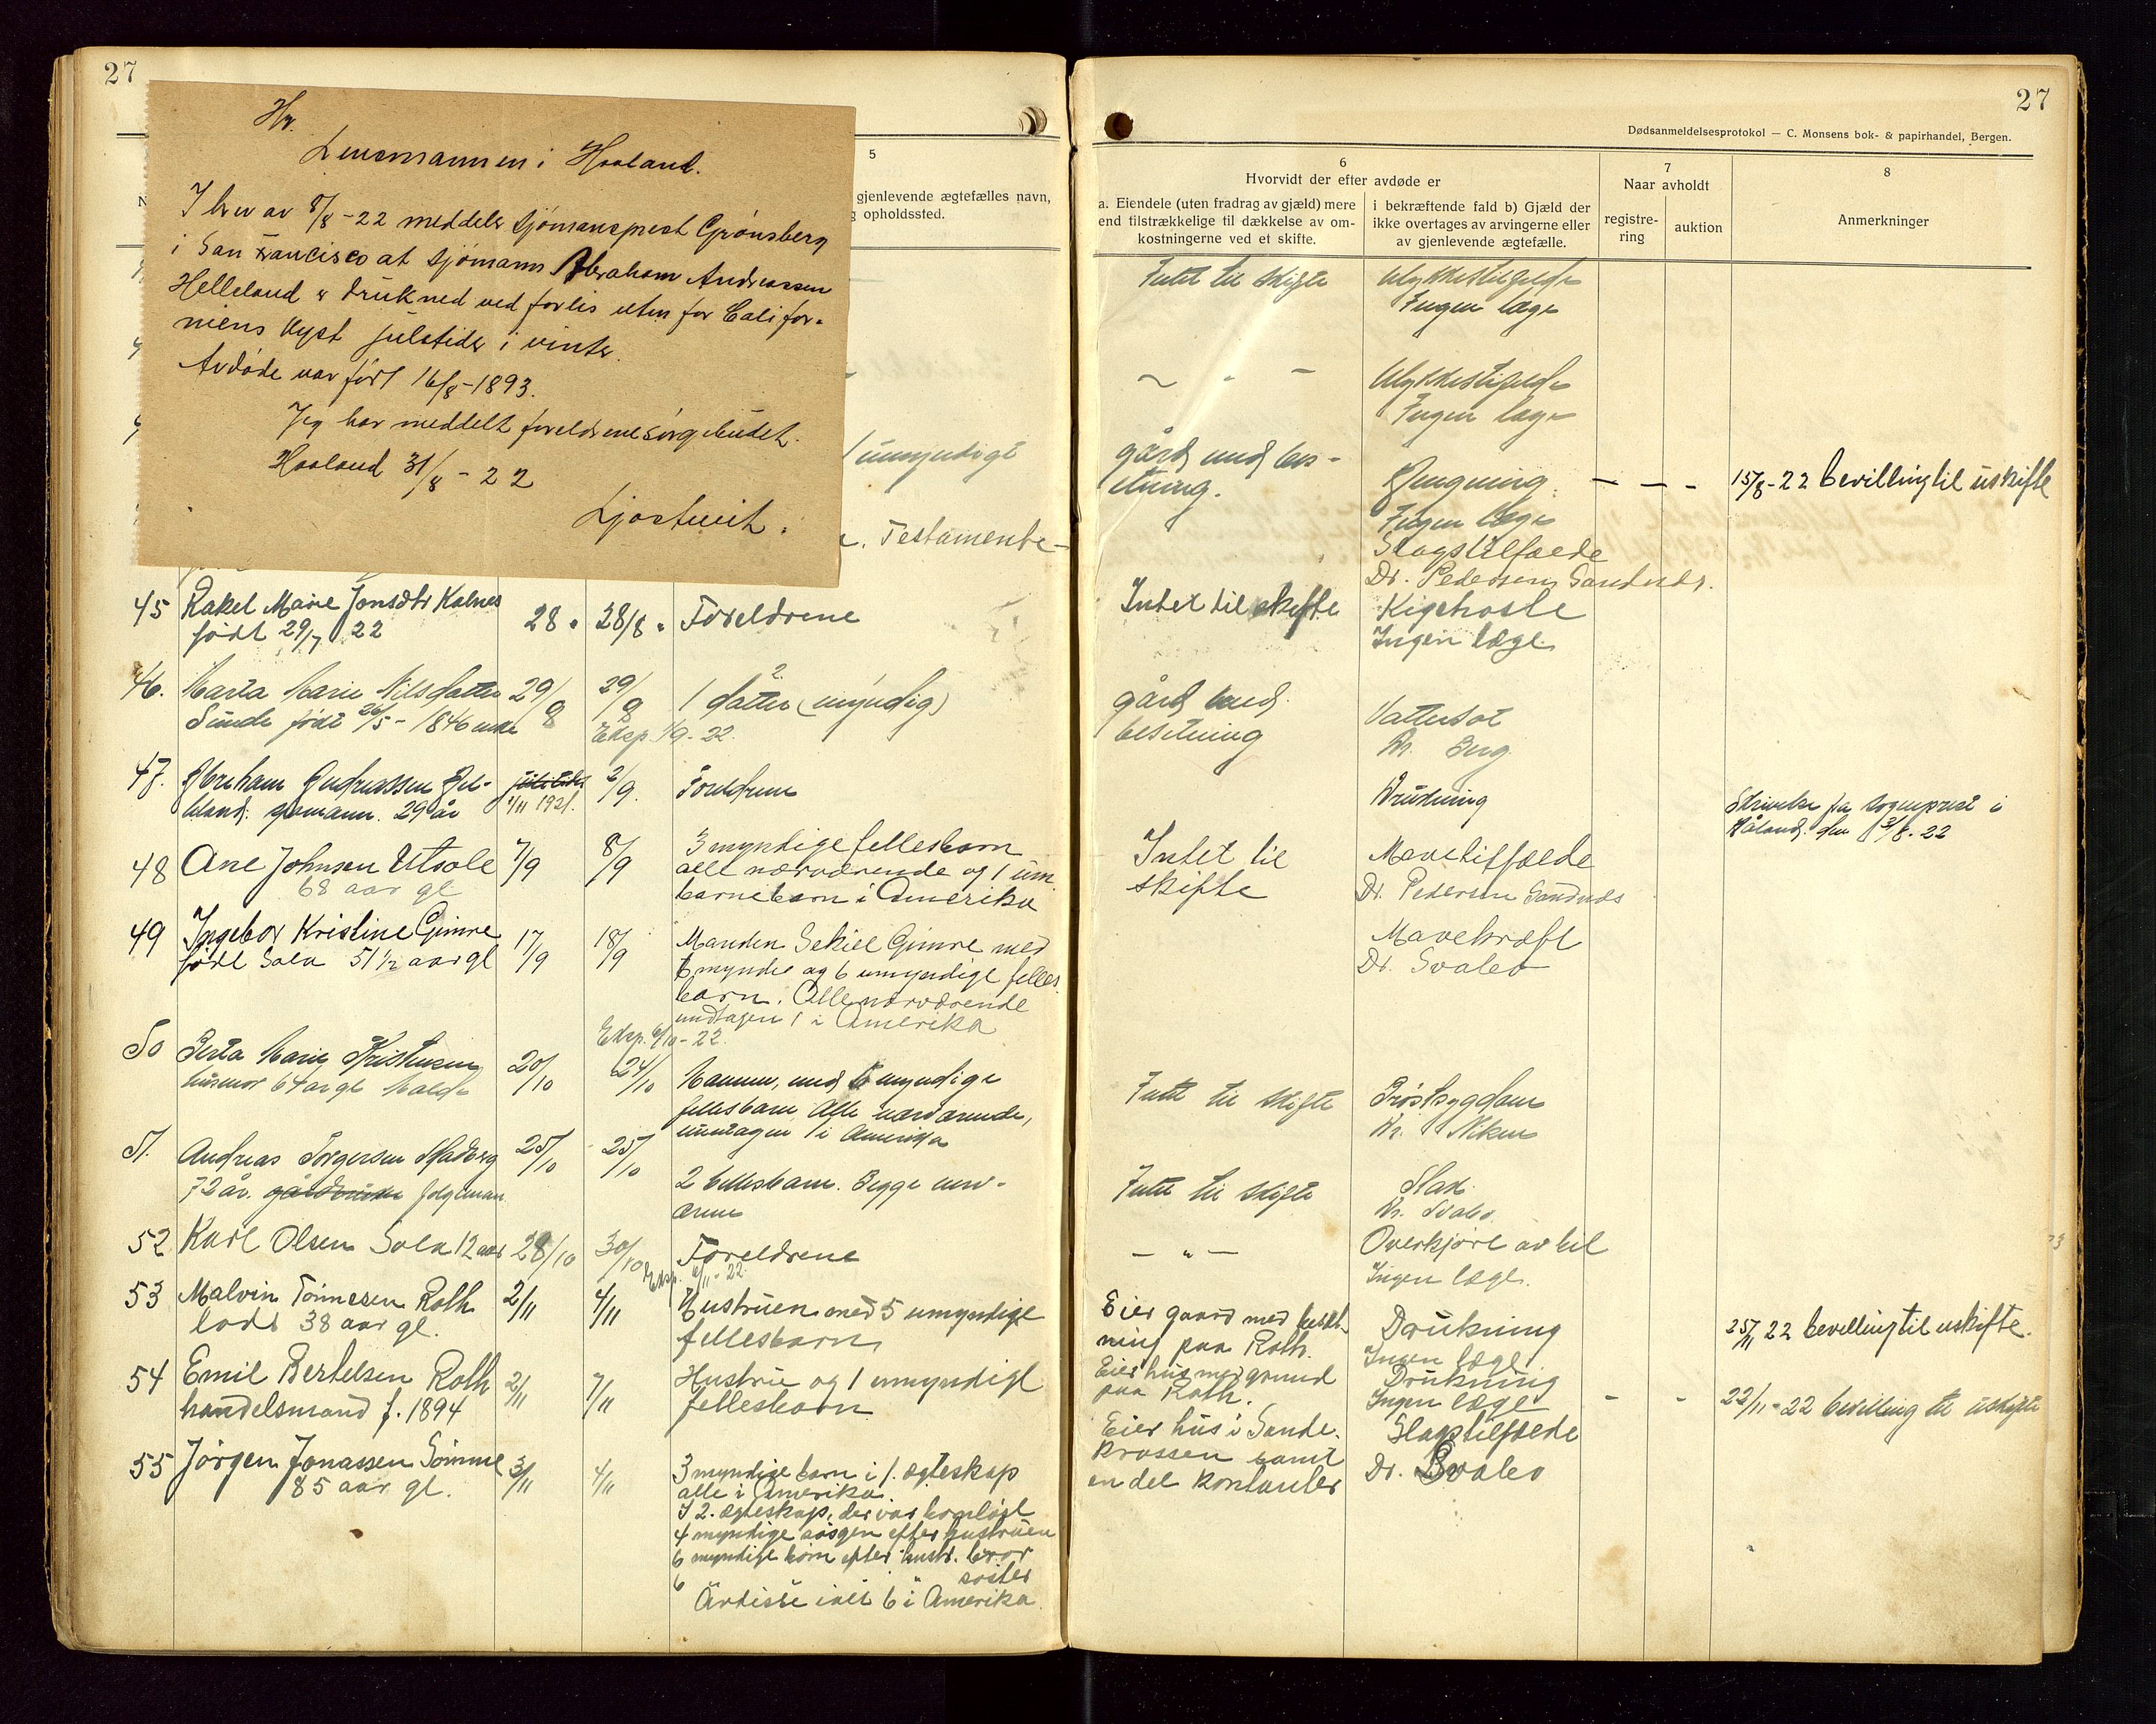 27
Hr.
Lensmannen i Haaland.
I brev av 8/8 - 22 meddeler sjömansprest Grönsberg
i San Francisco at sjömann Abraham Andreassen
Helleland er druknet ved forlis uten for Califor-
niens kyst juletider i vinter.
Avdøde var født 16/8 - 1893.
Jeg har meddelt foreldrene sörgebudet.
Haaland 31/8 - 22
5
gjenlevende ægtefælles navn,
opholdssted.
1 umyndigt
Testamente-
45 Rakel Marie Jonsdtr Kolnes 28 " 28/8 " Foreldrene
født 29/7 22
46. Marta Marie Nilsdatter 29/8 29/8 1 datter (myndig)
Sunde født 26/5 - 1846 enke Eksp. 1/9 - 22.
47. Abraham Andreassen Hel- juletider 2/9. Foreldrene
leland. sjømann. 29 år 1/11 1921.
48 Ane Johnsen Utsole 7/9 8/9 3 myndige fellesbarn
68 aar gl alle nærværende og 1 um.
barnebarn i Amerika
49 Ingebor Kristine Gimre 17/9 18/9 Manden Sekiel Gimre med
født Sola 51 1/2 aar gl 6 myndie og 6 umyndige felles
barn. Alle nærværende
undtagen 1 i Amerika
Eksp. 6/10 - 22.
50 Berta Marie Kristensen 20/10 24/10 Mannen, med 6 myndige
husmor 64 ar gl Malde fellesbarn Alle nærværende,
unntagen 1 i Amerika
51. Andreas Torgersen 25/10 25/10 2 fellesbarn. Begge nærv-
72 år. gårdbruker folgeman ærene
52 Karl Olsen Sola 12 aar 28/10 30/10 Foreldrene
Eksp. 6/11 - 22
53 Malvin Tønnesen Roth 2/11 4/11 Hustruen med 5 umyndige
lods 38 aar gl. fellesbarn
54 Emil Bertelsen Roth 2/11 7/11 Hustrue og 1 umyndigt
handelsmand f. 1894 fellesbarn
55 Jörgen Jonassen Sömme 3/11 4/11 3 myndige barn i 1. ægteskap
85 aar gl. alle i Amerika
I 2. ægteskap, der var barnløst
4 myndige søsgen efter hustruen
6 myndige börn efter hustr. bror
6 " " " " søster
Av disse ialt 6 i Amerika
27
Dødsanmeldelsesprotokol — C. Monsens bok- & papirhandel, Bergen.
6
Hvorvidt der efter avdøde er
a. Eiendele (uten fradrag av gjæld) mere
end tilstrækkelige til dækkelse av om-
kostningerne ved et skifte.
i bekræftende fald b) Gjæld der
ikke overtages av arvingerne eller
av gjenlevende ægtefælle.
7
Naar avholdt
registre-
ring
auktion
8
Anmerkninger
Intet til skifte Ulykkestilfelde
Ingen læge
~ " — Ulykkestilfelde
Ingen læge
gård med bes-
etning. Hengning. — — - 15/8 - 22 bevilling til uskifte
Ingen læge
Slagstilfælde
Dr. Pedersen, Sandnes.
Intet til skifte Kighoste
Ingen læge
gård med Vattersot
besetning Dr. Berg
Drukning Skrivelse fra sogneprest i
Håland. den 31/8 - 22
Intet til Mavetilfælde
skifte Dr. Pedersen Sandnes
Mavekræft
Dr. Svabo
Intet til skifte Brøstsygdom
Dr.
Intet til skifte Slag.
Dr. Svabo.
— " — Overkjørt av bil
Ingen læge.
Eier gaard med besæt-
ning paa Roth. Drukning 25/11 22 bevilling til uskifte.
Ingen læge
Eier hus med grund Drukning
paa Roth. Ingen læge - - 22/11 - 22 bevilling til uskifte
Eier hus i Sande- Slagtilfælde
krossen samt Dr. Svabo
en del kontanter